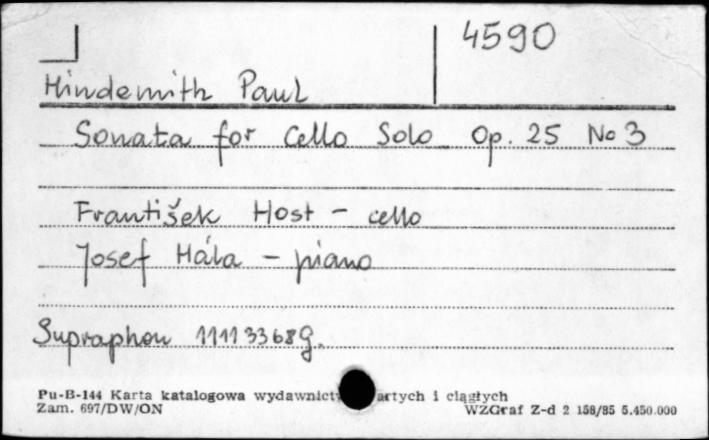 4590
Hindemith Paul
Sonata for Cello Solo Op. 25 No 3
František Host – cello
Josef Hála – piano
Supraphon 11113368g.
Pu-B-144 Karta katalogowa wydawnict artych i ciągłych
Zam. 697/DW/ON WZGraf Z-d 2 158/85 5.450.000